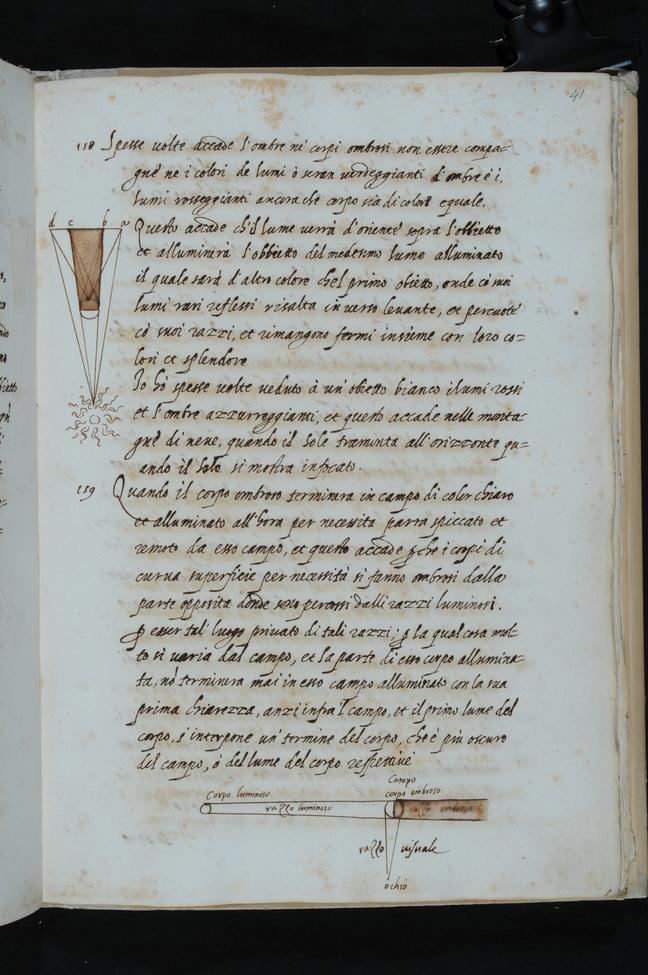 41
118 Spesse volte accade l'ombre ne corpi ombrosi non essere compa=
gne ne i colori de lumi ò seran verdeggianti l'ombre è i
lumi rosseggianti ancora che corpo sia di colore equale.
d c b a
Questo accade ch'il lume verrà d'oriente sopra l'obbietto
et alluminerà l'obbietto del medesimo lume alluminato
il quale sarà d'altro colore chel primo obietto, onde cò suoi
lumi rari reflessi risalta in verso levante, et percuote
cò suoi razzi, et rimangono fermi insieme con loro co=
lori et splendore
Io hò spesse volte veduto à un obietto bianco i lumi rossi
et l'ombre azzurreggianti, et questo accade nelle monta=
gne di neve, quando il sole tramonta all'orizzonte qu=
ando il sole si mostra infocato.
119 Quando il corpo ombroso terminera in campo di color chiaro
et alluminato all'hora per necessita parra spiccato et
remoto da esso campo, et questo accade perche i corpi di
curva superficie per necessità si fanno ombrosi dalla
parte opposita donde sono percossi dalli razzi luminosi.
per esser tal' luogo privato di tali razzi; per la qual cosa mol=
to si varia dal campo, et la parte di esso corpo allumina=
ta, nò terminera mai in esso campo alluminato con la sua
prima chiarezza, anzi infra'l campo, et il primo lume del
corpo, s'interpone un termine del corpo, che è più oscuro
del campo, ò del lume del corpo respettive
Campo
Corpo luminoso corpo ombroso
razzo luminoso razzo ombroso
razzo visuale
ochio